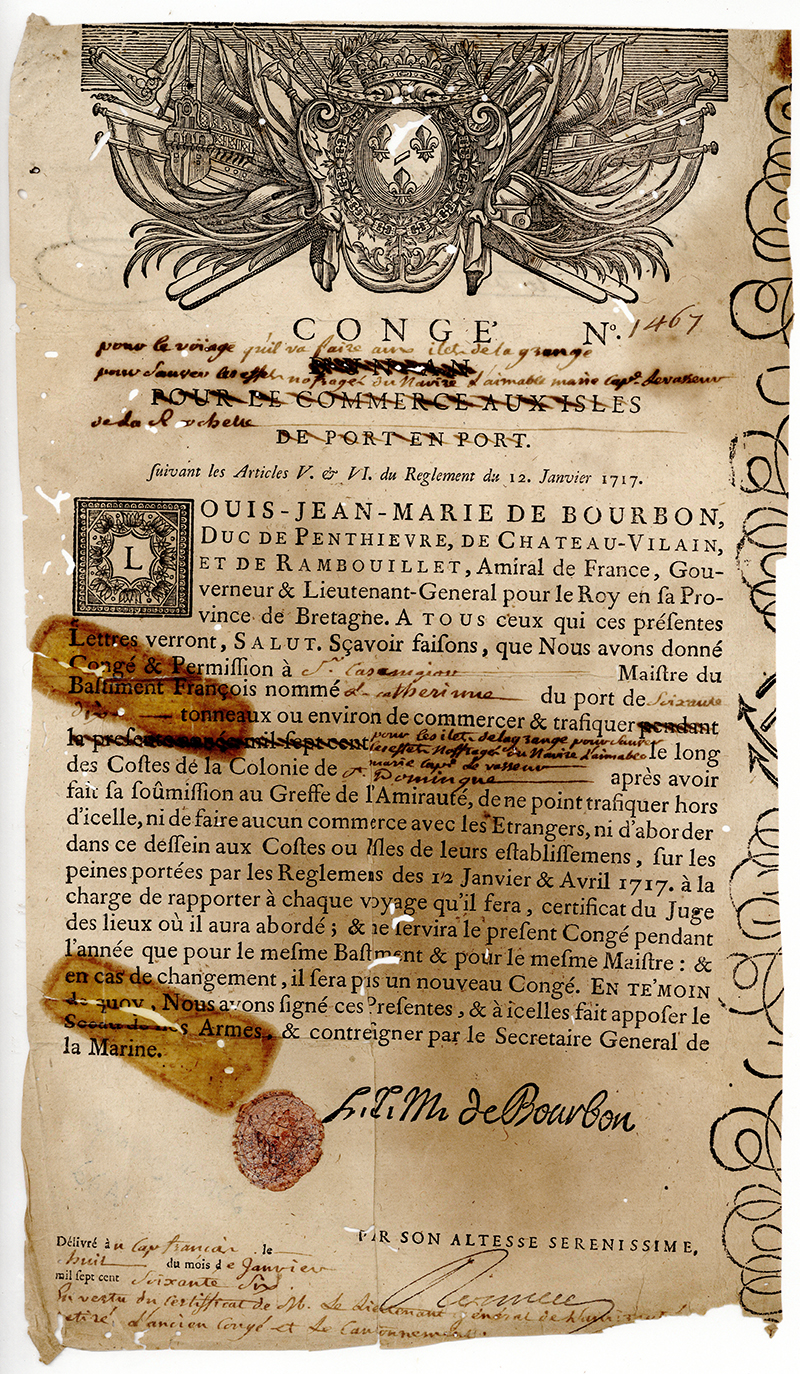 CONGE' Nº. 1467
pour le voiage qu'il va faire aux ilets de la grange
D'UN AN
pour Sauver les effets nofragés du Navire L'aimable marie Cape. Levasseur
POUR LE COMMERCE AUX ISLES
de la Rochelle
DE PORT EN PORT.
ſuivant les Articles V. & VI. du Reglement du 12. Janvier 1717.
LOUIS-JEAN-MARIE DE BOURBON,
DUC DE PENTHIEVRE, DE CHATEAU-VILAIN,
ET DE RAMBOUILLET, Amiral de France, Gou-
verneur & Lieutenant-General pour le Roy en ſa Pro-
vince de Bretagne. A TOUS ceux qui ces préſentes
Lettres verront, SALUT. Sçavoir faiſons, que Nous avons donné
Congé & Permiſſion à Sr. Maiſtre du
Baſtiment François nommé La Catherinne du port de Soixante
dix tonneaux ou environ de commercer & trafiquer pendant
la preſente année mil ſept cent pour les ilets de la grange pour sauver
les effets noffragés du Navire L'aimable le long
marie Cape. Le vasseur
des Coſtes de la Colonie de St. Domingue après avoir
fait ſa ſoûmiſſion au Greffe de l'Amirauté, de ne point trafiquer hors
d'icelle, ni de faire aucun commerce avec les Etrangers, ni d'aborder
dans ce deſſein aux Coſtes ou Iſles de leurs eſtabliſſemens, ſur les
peines portées par les Reglemens des 12 Janvier & Avril 1717. à la
charge de rapporter à chaque voyage qu'il fera, certificat du Juge
des lieux où il aura abordé; & ne ſervira le preſent Congé pendant
l'année que pour le meſme Baſtiment & pour le meſme Maiſtre: & 
en cas de changement, il ſera pris un nouveau Congé. EN TE'MOIN
de quoy, Nous avons ſigné ces Preſentes, & à icelles fait appoſer le
Sceau de nos Armes, & contreſigner par le Secretaire General de
la Marine.
L. J. M. de Bourbon
PAR SON ALTESSE SERENISSIME,
Délivré au Cap francais le
huit du mois de Janvier
mil ſept cent Soixante Six
En vertu du Certificat de M. Le Lieutenant général de
retiré L'ancien Congé et Le Cautionnement.